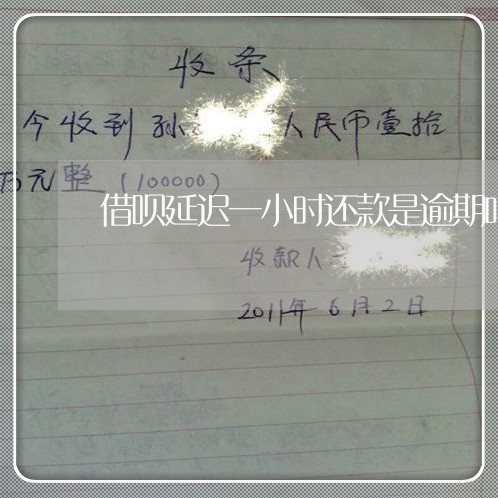 收条
今收到 孙 人民币壹拾
万元整 (100000)
借呗延迟一小时还款是逾期
收款人
2011年6月2日